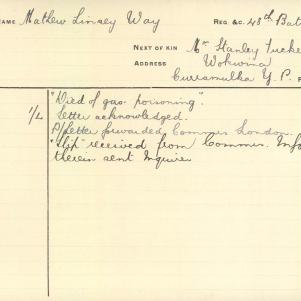 NAME Mathew Linsey Way REG &C. 48th Bat
NEXT OF KIN Mr Stanley Tucke
ADDRESS Wokurna
Curramulka Y. P.
"Died of gas poisoning".
1/L Letter acknowledged.
P/Letter forwarded, Commrs London.
"Slip" received from Commrs. Info
therein sent Inquirer